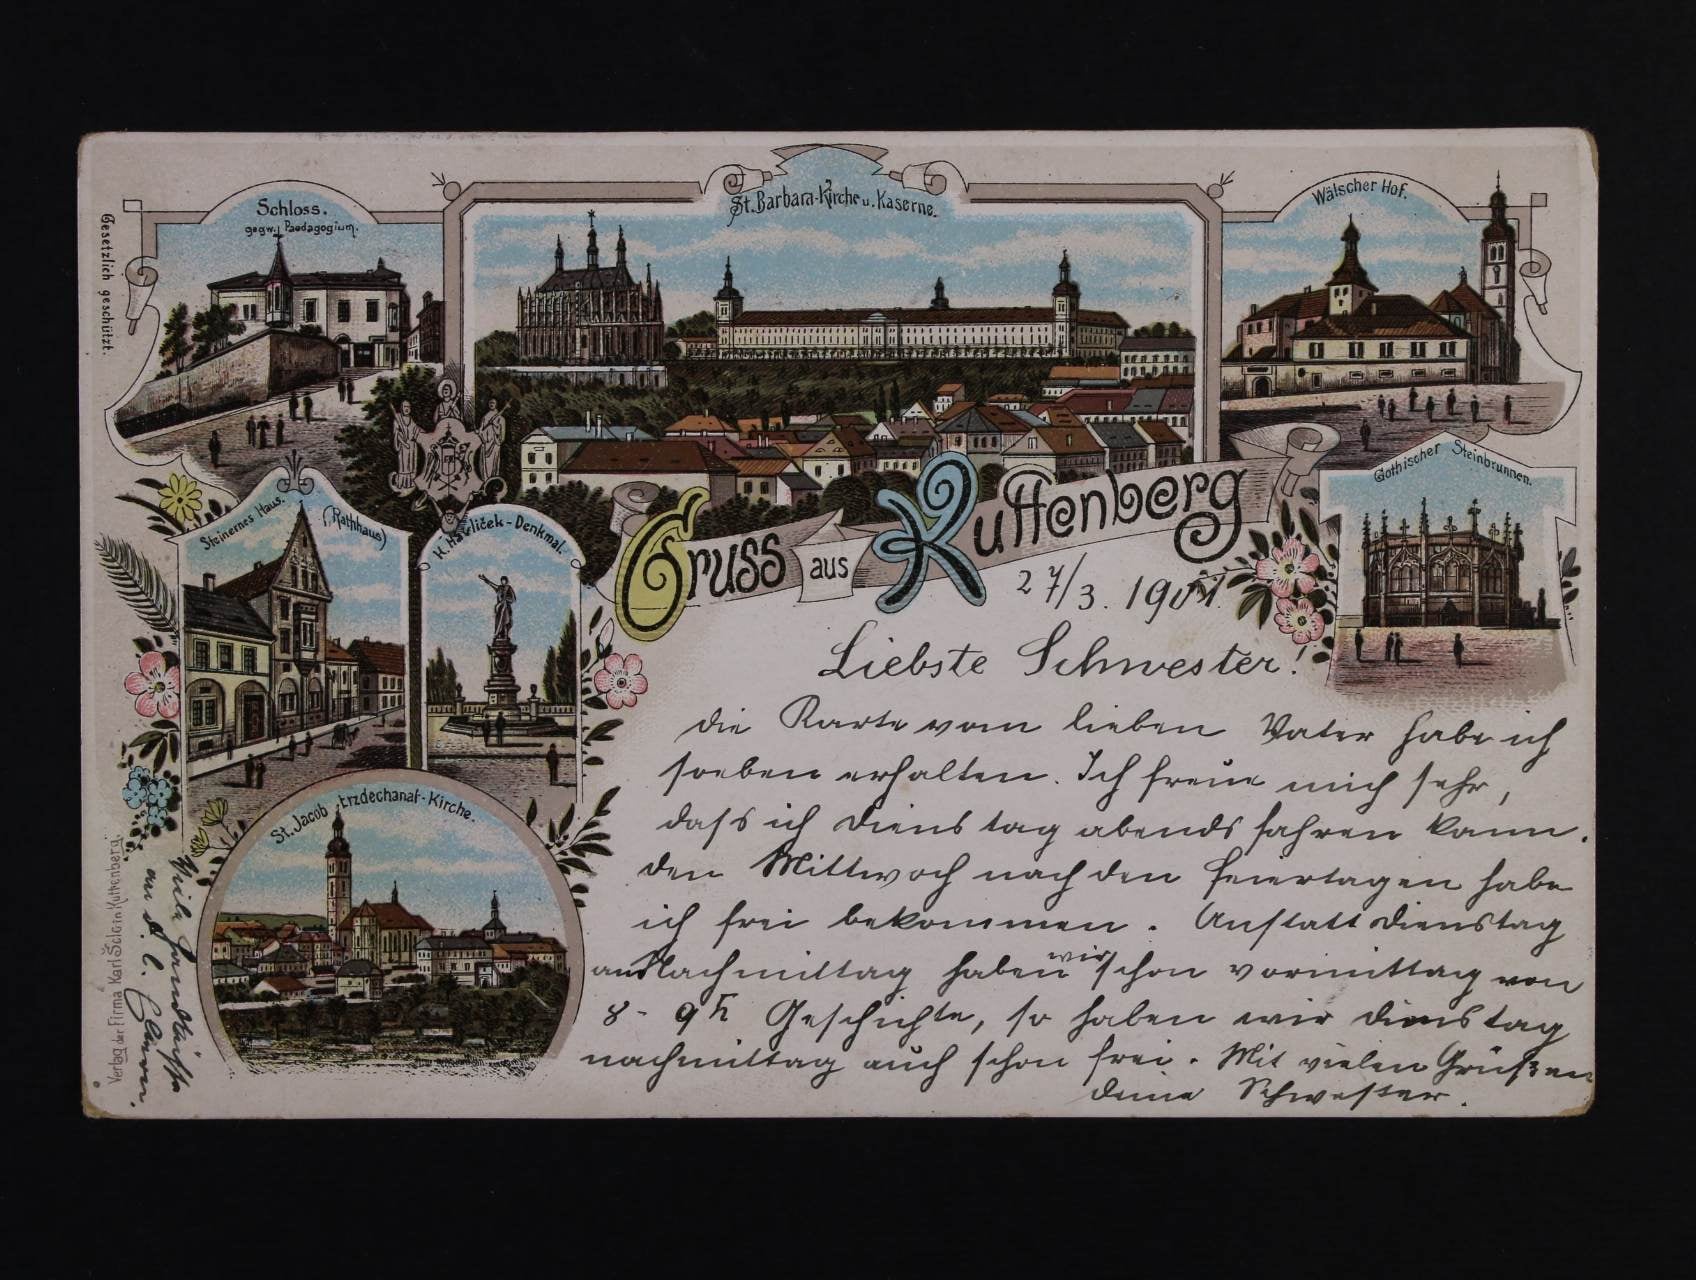 Gesetzlich geschützt.
Schloss.
gegw. Paedagogium.
St. Barbara-Kirche u. Kaserne.
Wälscher Hof.
Steinernes Haus.
(Rathhaus)
K. Havlíček-Denkmal.
Gothischer Steinbrunnen.
Gruss aus Kuttenberg
27/3. 1901.
St. Jacob Erzdechanat-Kirche.
Verlag der Firma Karl Šolc in Kuttenberg.
Liebste Schwester!
die Karte vom lieben Vater habe ich
soeben erhalten. Ich freue mich sehr,
dass ich Dienstag abends fahren kann.
den Mittwoch nach den Feiertagen habe
ich frei bekommen. Anstatt Dienstag
nachmittag haben wir schon vormittag von
8-9h Geschichte, so haben wir Dienstag
nachmittag auch schon frei. Mit vielen Grüßen
deine Schwester.
Viele Handküsse
an d. l. Eltern.